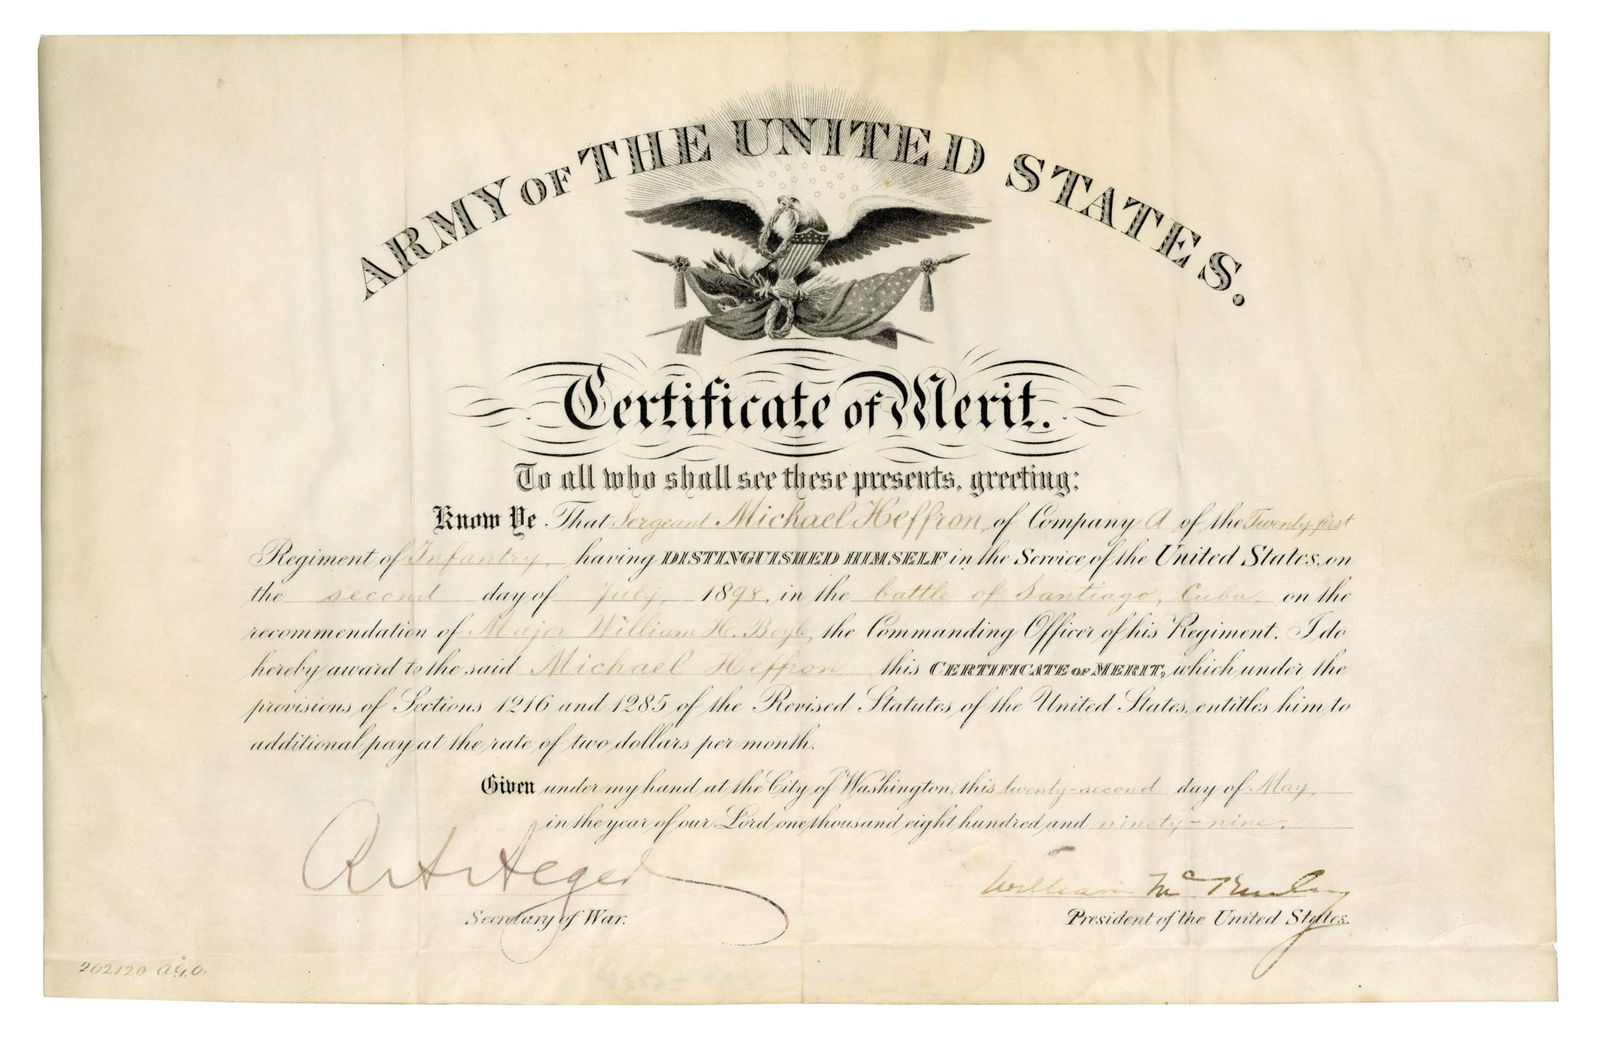 ARMY OF THE UNITED STATES.
Certificate of Merit.
To all who shall see these presents, greeting:
Know Ye That Sergeant Michael Heffron, of Company A of the Twenty-first
Regiment of Infantry, having DISTINGUISHED HIMSELF in the Service of the United States, on
the second day of July, 1898, in the battle of Santiago, Cuba, on the
recommendation of Major William H. Boyle, the Commanding Officer of his Regiment. I do
hereby award to the said Michael Heffron this CERTIFICATE OF MERIT, which under the
provisions of Sections 1216 and 1285 of the Revised Statutes of the United States, entitles him to
additional pay at the rate of two dollars per month.
Given under my hand at the City of Washington, this twenty-second day of May,
in the year of our Lord one thousand eight hundred and ninety-nine.
William McKinley
Secretary of War.
President of the United States.
202120 A.G.O.